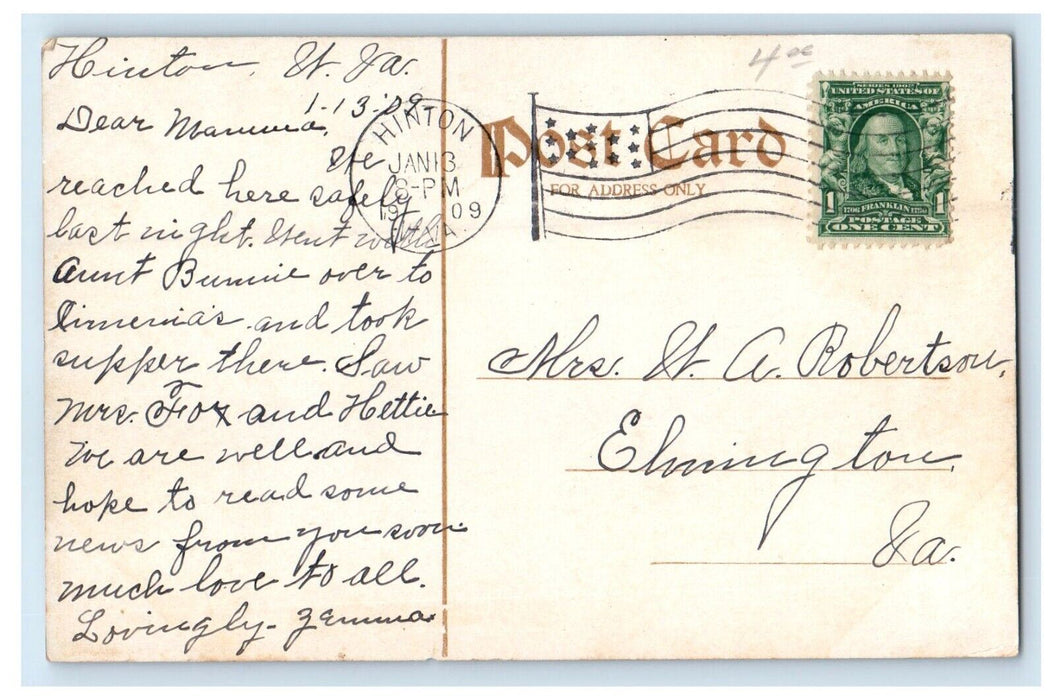 Hinton, W. Va.
1-13-'09
Dear Mamma,
We
reached here safely
last night. Went with
Aunt Bunnie over to
and took
supper there. Saw
Mrs. Fox and Hettie
We are well and
hope to read some
news from you soon
much love to all.
Lovingly - Zemma
HINTON
JAN 13
8-PM
19 09
W.VA.
4
Post Card
FOR ADDRESS ONLY
SERIES 1902
UNITED STATES OF
AMERICA
1706 FRANKLIN 1790
1 POSTAGE 1
ONE CENT
Mrs. W. A. Robertson,
Elmington,
Va.